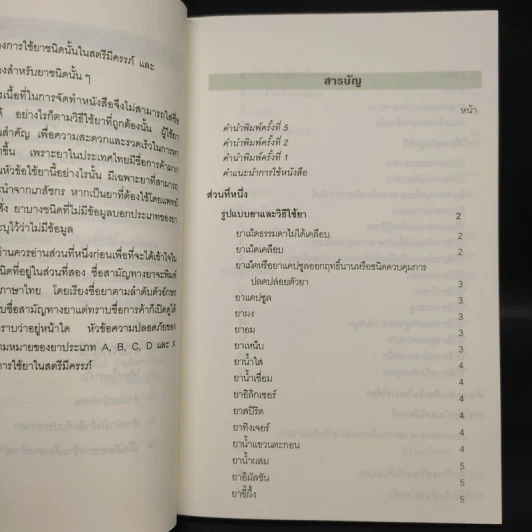 องการใช้ยาชนิดนั้นในสตรีมีครรภ์ และ
องสำหรับยาชนิดนั้น ๆ
งเนื้อที่ในการจัดทำหนังสือจึงไม่สามารถใส่ชื่อ
ได้ อย่างไรก็ตามวิธีใช้ยาที่ถูกต้องนั้น ผู้ใช้ยา
นสำคัญ เพื่อความสะดวกและรวดเร็วในการหา
าขึ้น เพราะยาในประเทศไทยมีชื่อการค้ามาก
นหัวข้อใช้ยานี้อย่างไรนั้น มีเฉพาะยาที่สามารถ
ะนำจากเภสัชกร หากเป็นยาที่ต้องใช้โดยแพทย์
สั่ง ยาบางชนิดที่ไม่มีข้อมูลบอกประเภทของยา
ะบุไว้ว่าไม่มีข้อมูล
่านควรอ่านส่วนที่หนึ่งก่อนเพื่อที่จะได้เข้าใจใน
นิดที่อยู่ในส่วนที่สอง ชื่อสามัญทางยาจะพิมพ์
ภาษาไทย โดยเรียงชื่อยาตามลำดับตัวอักษร
บชื่อสามัญทางยาแต่ทราบชื่อการค้าก็เปิดดูได้
ราบว่าอยู่หน้าใด หัวข้อความปลอดภัยของ
ามหมายของยาประเภท A, B, C, D และ X
การใช้ยาในสตรีมีครรภ์
สารบัญ
หน้า
คำนำพิมพ์ครั้งที่ 5
คำนำพิมพ์ครั้งที่ 2
คำนำพิมพ์ครั้งที่ 1
คำแนะนำการใช้หนังสือ
ส่วนที่หนึ่ง
รูปแบบยาและวิธีใช้ยา 2
ยาเม็ดธรรมดาไม่ได้เคลือบ 2
ยาเม็ดเคลือบ 2
ยาเม็ดหรือยาแคปซูลออกฤทธิ์นานหรือชนิดควบคุมการ
ปลดปล่อยตัวยา 2
ยาแคปซูล 3
ยาผง 3
ยาอม 3
ยาเหน็บ 3
ยาน้ำใส 3
ยาน้ำเชื่อม 4
ยาอิลิกเซอร์ 4
ยาสปิริต 4
ยาทิงเจอร์ 4
ยาน้ำแขวนตะกอน 4
ยาน้ำผสม 5
ยาอิมัลชัน 5
ยาขี้ผึ้ง 5